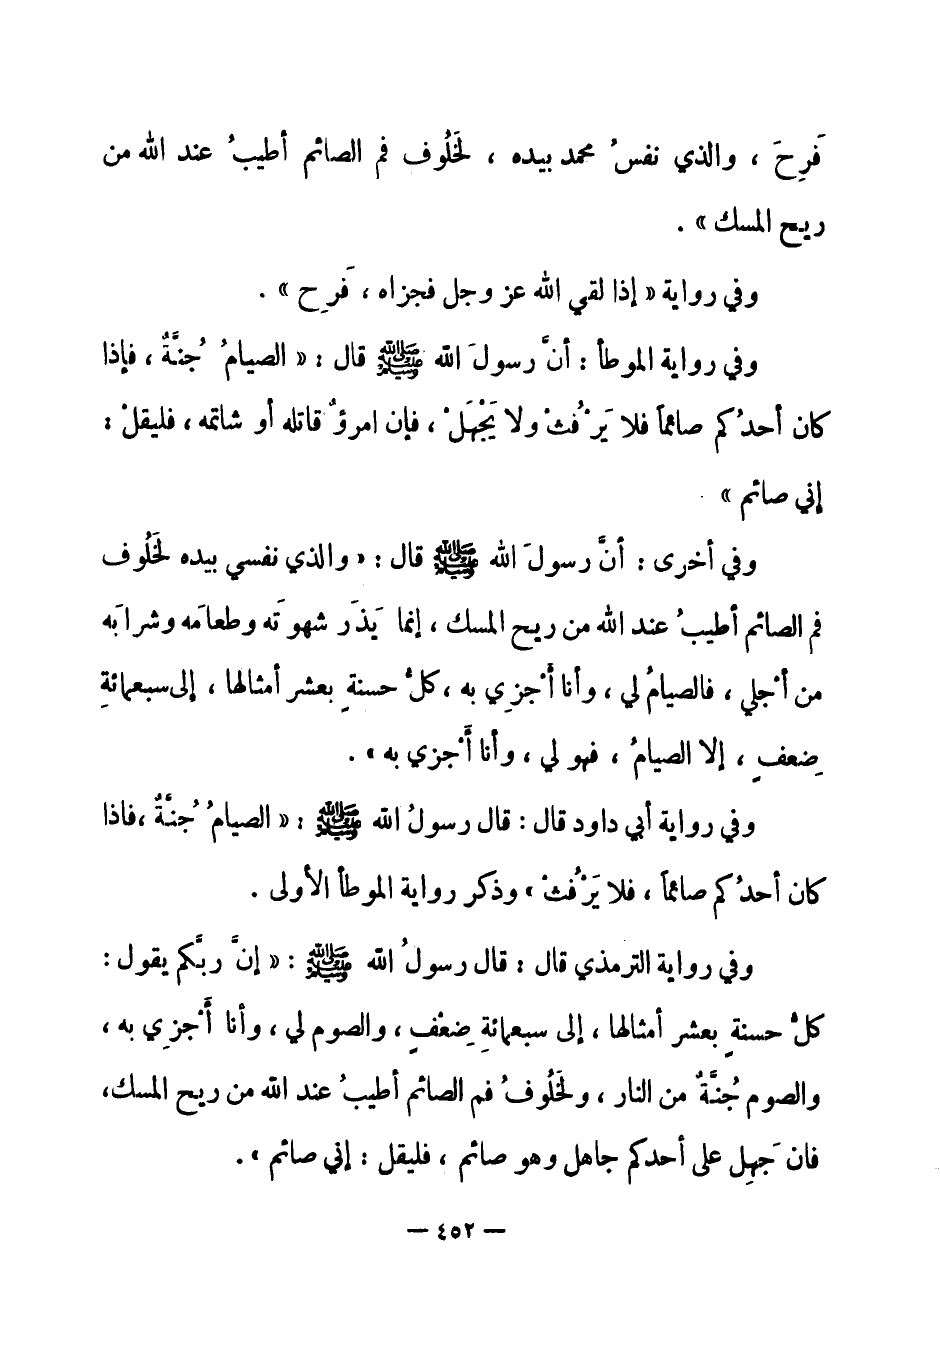 فَرِحَ ، والذي نفسُ محمد بيده ، لَخَلُوف فم الصائم أطيبُ عند الله من
ريح المسك » .
وفي رواية « إذا لقي الله عز وجل فجزاه ، فَرِح » .
وفي رواية الموطأ : أنَّ رسولَ الله ﷺ قال : « الصيامُ جُنَّةٌ ، فإذا
كان أحدُكم صائماً فلا يَرْفُثْ ولا يَجْهَلْ ، فإن امرؤٌ قاتله أو شاتمه ، فليقلْ :
إني صائم »
وفي أخرى : أنَّ رسولَ الله ﷺ قال : « والذي نفسي بيده لَخَلُوف
فم الصائم أطيبُ عند الله من ريح المسك ، إنما يَذَر شهوتَه وطعامَه وشرابَه
من أجْلي ، فالصيامُ لي ، وأنا أَجْزِي به ، كلُّ حسنةٍ بعشر أمثالها ، إلى سبعمائةِ
ضِعفٍ ، إلا الصيامُ ، فهو لي ، وأنا أَجْزي به » .
وفي رواية أبي داود قال : قال رسولُ الله ﷺ : « الصيامُ جُنَّةٌ ، فاذا
كان أحدُكم صائماً ، فلا يَرْفُثْ » وذكر رواية الموطأ الأولى .
وفي رواية الترمذي قال : قال رسولُ الله ﷺ : « إنَّ ربَّكم يقول :
كلُّ حسنةٍ بعشر أمثالها ، إلى سبعمائةِ ضِعْفٍ ، والصوم لي ، وأنا أَجْزِي به ،
والصوم جُنَّةٌ من النار ، ولَخَلُوفُ فم الصائم أطيبُ عند الله من ريح المسك،
فان جَهِل على أحدكم جاهل وهو صائم ، فليقل : إني صائم » .
— ٤٥٢ —